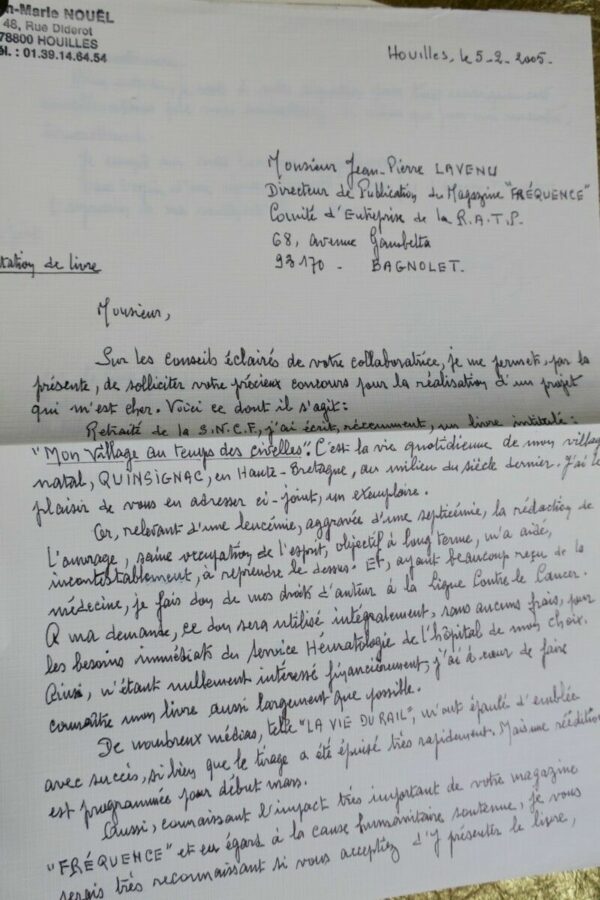 n-Marie NOUËL
48, Rue Diderot
78800 HOUILLES
él. : 01.39.14.64.54
Houilles, le 5-2-2005-
Monsieur Jean-Pierre LAVENU
Directeur de Publication du Magazine "FRÉQUENCE"
Comité d'Entreprise de la R.A.T.P.
68, avenue Gambetta
93170 - BAGNOLET.
tation de livre
Monsieur,
Sur les conseils éclairés de votre collaboratrice, je me permets, par la
présente, de solliciter votre précieux concours pour la réalisation d'un projet
qui m'est cher. Voici ce dont il s'agit:
Retraité de la S.N.C.F, j'ai écrit, récemment, un livre intitulé:
"Mon village au temps des civelles". C'est la vie quotidienne de mon villag
natal, QUINSIGNAC, en Haute-Bretagne, au milieu du siècle dernier. J'ai le
plaisir de vous en adresser ci-joint, un exemplaire.
Or, relevant d'une leucémie, aggravée d'une septicémie, la rédaction de
l'ouvrage, saine occupation de l'esprit, objectif à long terme, m'a aidé,
incontestablement, à reprendre le dessus. Et, ayant beaucoup reçu de la
médecine, je fais don de mes droits d'auteur à la Ligue Contre le Cancer.
A ma demande, ce don sera utilisé intégralement, sans aucuns frais, pour
les besoins immédiats du Service Hématologie de l'hôpital de mon choix.
Ainsi, n'étant nullement intéressé financièrement, j'ai à cœur de faire
connaître mon livre aussi largement que possible.
De nombreux médias, telle "LA VIE DU RAIL", m'ont épaulé d'emblée
avec succès, si bien que le tirage a été épuisé très rapidement. Mais une réédition
est programmée pour début mars.
Aussi, connaissant l'impact très important de votre magazine
"FRÉQUENCE" et en égard à la cause humanitaire soutenue, je vous
serais très reconnaissant si vous acceptiez d'y présenter le livre,